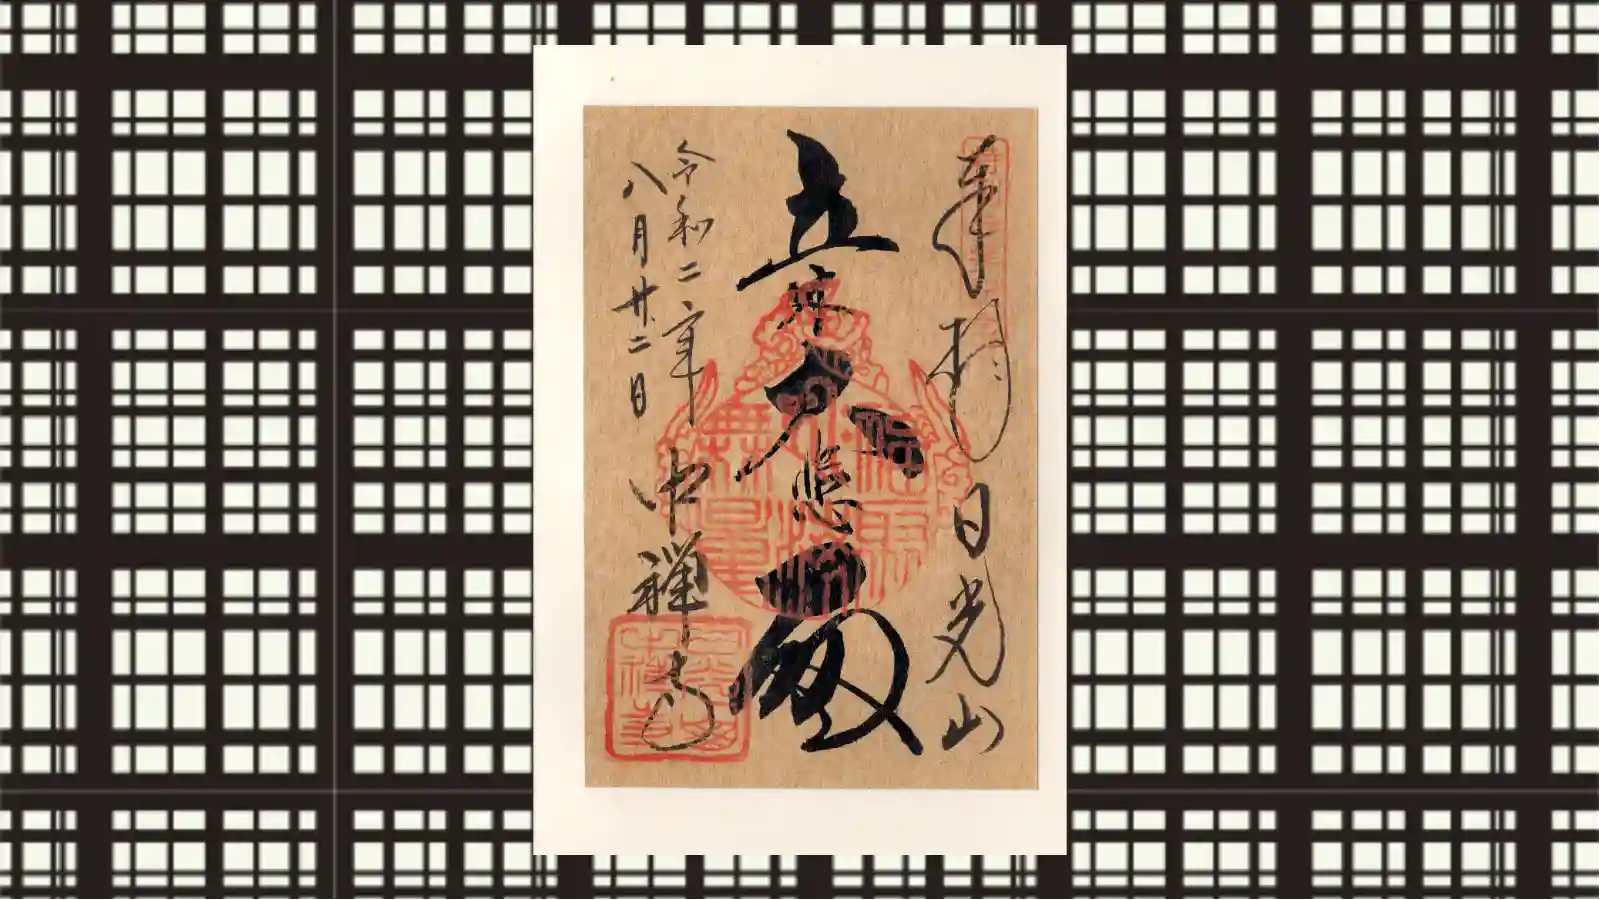 奉拝 日光山
立木大悲殿
令和二年
八月廿二日
中禅寺